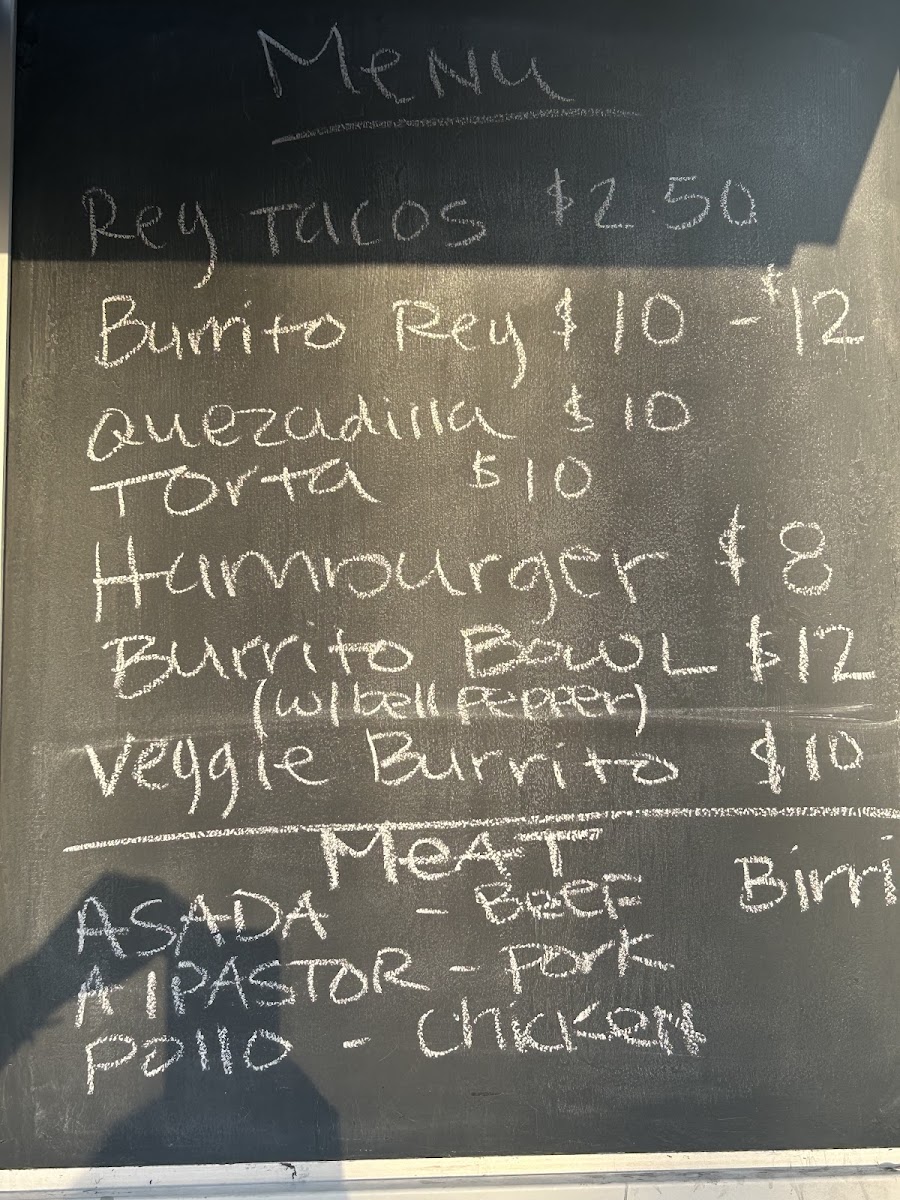 Menu
Rey Tacos $2.50
Burrito Rey $10 - $12
Quezadilla $10
Torta $10
Hamburger $8
Burrito Bowl $12
(w/bell pepper)
Veggie Burrito $10
MeAT
ASADA - BeeF Birri
Al PASTOR - Pork
Pollo - Chicken